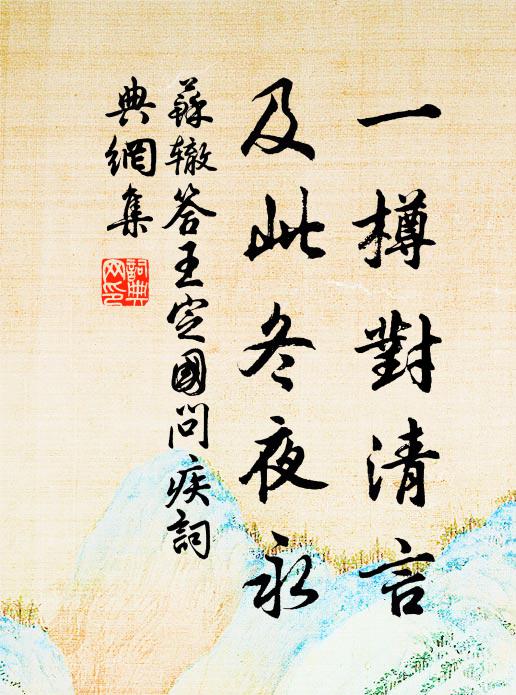 一樽對清言
及此冬夜永
蘇辙答王定國問疾詞
典網集
詞典
网印